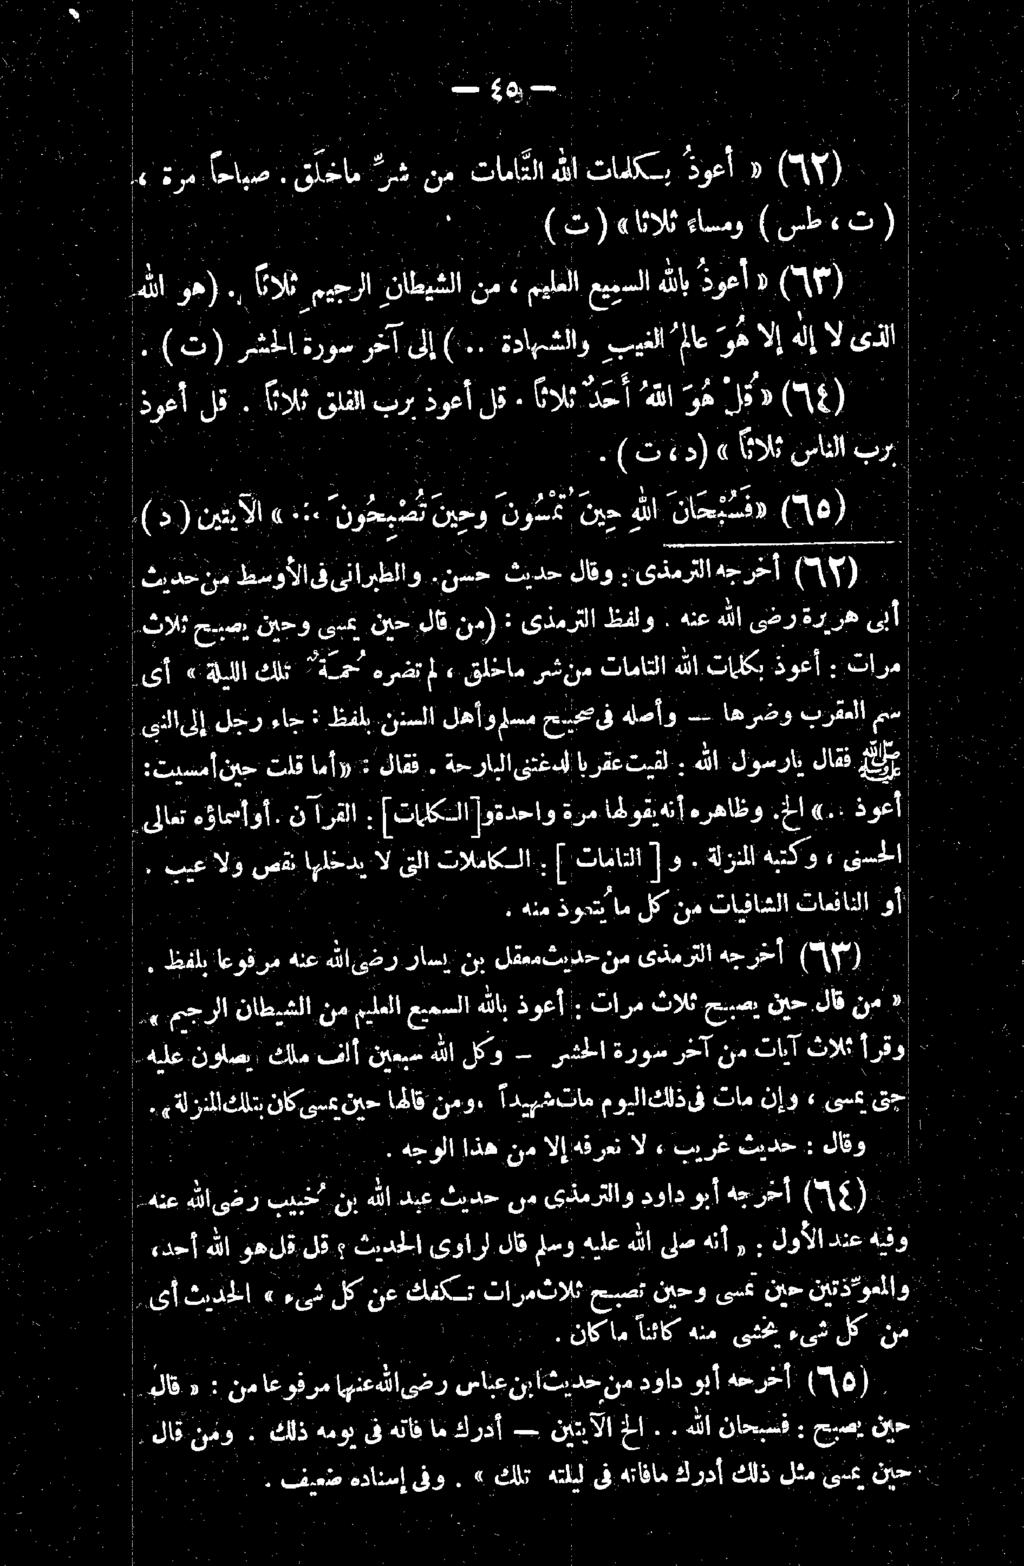 — ٤٥ —
(٦٢) « أعوذُ بـكلمات الله التَّامات من شرِّ ماخلَق . صباحاً مرة ،
( ت ، طس ) ومساءً ثلاثا » ( ت )
(٦٣) « أعوذُ بالله السميع العليم ، من الشيطانِ الرجيمِ ثلاثاً . (هو الله
الذى لا إله إلا هُوَ عالمُ الغيبِ والشهادة .. ) إلى آخر سورة الحشر ( ت ) .
(٦٤) « قُلْ هُوَ اللهُ أَحَدٌ ثلاثاً . قل أعوذ برب الفلق ثلاثاً . قل أعوذ
برب الناس ثلاثاً » (د ، ت ) .
(٦٥) « فَسُبْحَانَ اللهِ حِينَ تُمْسُونَ وحِينَ تُصْبِحُونَ ... » الآيتين ( د )
(٦٢) أخرجه الترمذى : وقال حديث حسن . والطبرانى فى الأوسط من حديث
أبى هريرة رضى الله عنه . ولفظ الترمذى : (من قال حين يمسى وحين يصبح ثلاث
مرات : أعوذ بكلمات الله التامات من شر ماخلق ، لم تضره حُمَةٌ تلك الليلة » أى
سم العقرب وضرها — وأصله فى صحيح مسلم وأهل السنن بلفظ : جاء رجل إلى النبى
ﷺ فقال يارسول الله : لقيت عقربا لدغتنى البارحة . فقال : «أما قلت حين أمسيت :
أعوذ .. » الخ . وظاهره أنه يقولها مرة واحدة و[الـكلمات] : القرآن . أو أسماؤه تعالى
الحسنى ، وكتبه المنزلة . و [ التامات ] : الـكاملات التى لا يدخلها نقص ولا عيب .
أو النافعات الشافيات من كل مايُتعوذ منه .
(٦٣) أخرجه الترمذى من حديث معقل بن يسار رضى الله عنه مرفوعا بلفظ .
« من قال حين يصبح ثلاث مرات : أعوذ بالله السميع العليم من الشيطان الرجيم »
وقرأ ثلاث آيات من آخر سورة الحشر — وكل الله سبعين ألف ملك يصلون عليه
حتى يمسى ، وإن مات فى ذلك اليوم مات شهيداً ، ومن قالها حين يمسى كان بتلك المنزلة » .
وقال : حديث غريب ، لا نعرفه إلا من هذا الوجه .
(٦٤) أخرجه أبو داود والترمذى من حديث عبد الله بن خُبيب رضى الله عنه
وفيه عند الأول : « أنه صلى الله عليه وسلم قال لراوى الحديث ؟ قل قل هو الله أحد ،
والمعوِّذتين حين تمسى وحين تصبح ثلاث مرات تـكفك عن كل شىء » الحديث أى
من كل شىء يخشى منه كائناً ما كان .
(٦٥) أخرجه أبو داود من حديث ابن عباس رضى الله عنهما مرفوعا من : « قال
حين يصبح : فسبحان الله .. الخ الآيتين — أدرك ما فاته فى يومه ذلك . ومن قال
حين يمسى مثل ذلك أدرك مافاته فى ليلته تلك » . وفى إسناده ضعيف .